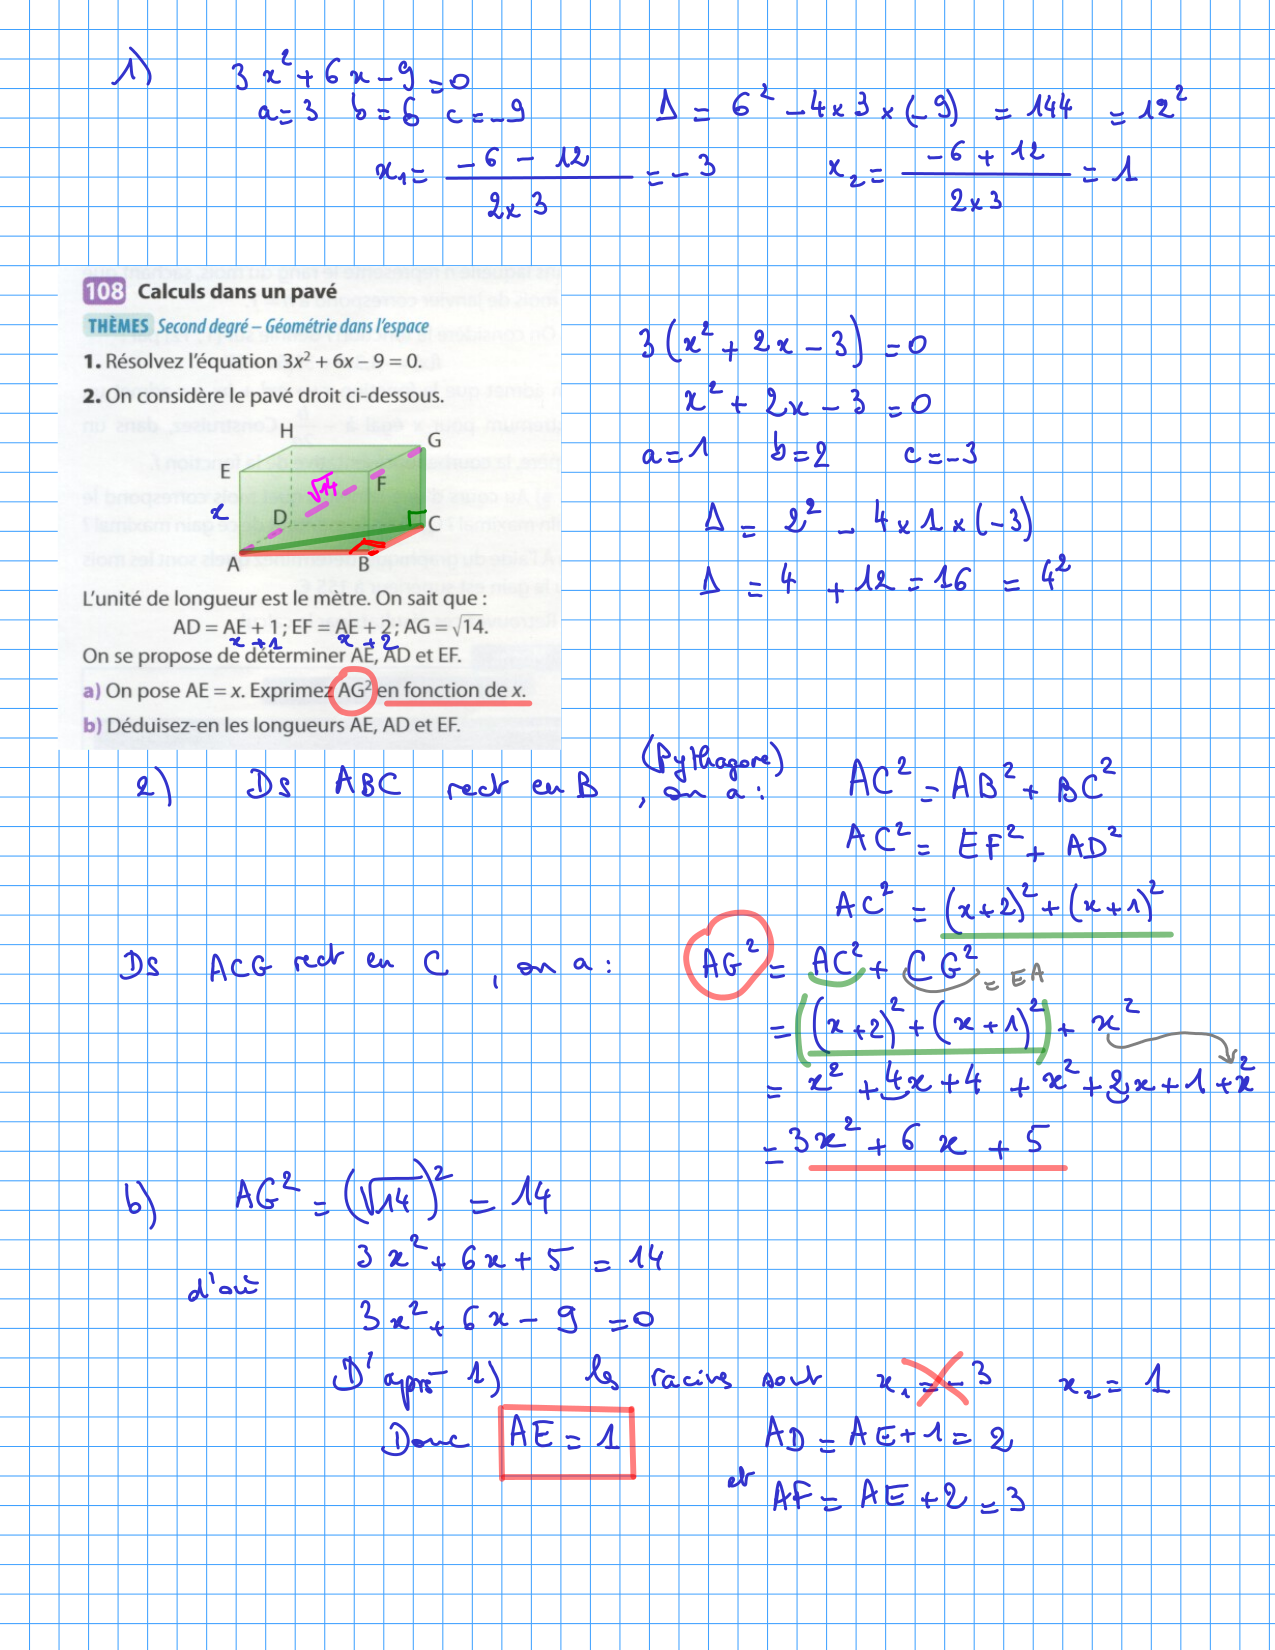 1) 3x² + 6x - 9 = 0
a = 3 b = 6 c = -9 Δ = 6² - 4 × 3 × (-9) = 144 = 12²
x₁ = (-6 - 12)/(2 × 3) = -3 x₂ = (-6 + 12)/(2 × 3) = 1
108 Calculs dans un pavé
THÈMES Second degré – Géométrie dans l'espace
1. Résolvez l'équation 3x² + 6x – 9 = 0.
2. On considère le pavé droit ci-dessous.
H
G
E
F
√14
x
D
C
A
B
L'unité de longueur est le mètre. On sait que :
AD = AE + 1 ; EF = AE + 2 ; AG = √14.
x + 1 x + 2
On se propose de déterminer AE, AD et EF.
a) On pose AE = x. Exprimez AG² en fonction de x.
b) Déduisez-en les longueurs AE, AD et EF.
3(x² + 2x - 3) = 0
x² + 2x - 3 = 0
a = 1 b = 2 c = -3
Δ = 2² - 4 × 1 × (-3)
Δ = 4 + 12 = 16 = 4²
2) Ds ABC rect en B (Pythagore), on a : AC² = AB² + BC²
AC² = EF² + AD²
AC² = (x+2)² + (x+1)²
Ds ACG rect en C, on a : AG² = AC² + CG² = EA
= ((x+2)² + (x+1)²) + x²
= x² + 4x + 4 + x² + 2x + 1 + x²
= 3x² + 6x + 5
b) AG² = (√14)² = 14
3x² + 6x + 5 = 14
d'où
3x² + 6x - 9 = 0
D'après 1) les racines sont x₁ = -3 x₂ = 1
Donc AE = 1 AD = AE + 1 = 2
et AF = AE + 2 = 3